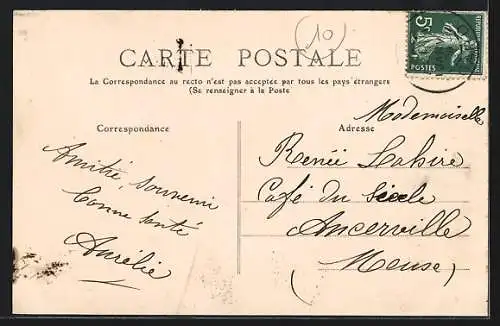 (10)
CARTE POSTALE
La Correspondance au recto n'est pas acceptée par tous les pays étrangers
(Se renseigner à la Poste
Correspondance
Adresse
5c
POSTES
Amitié, souvenir
bonne santé
Aurélie
Mademoiselle
Renée Lahire
Café du Siècle
Ancerville
(Meuse)